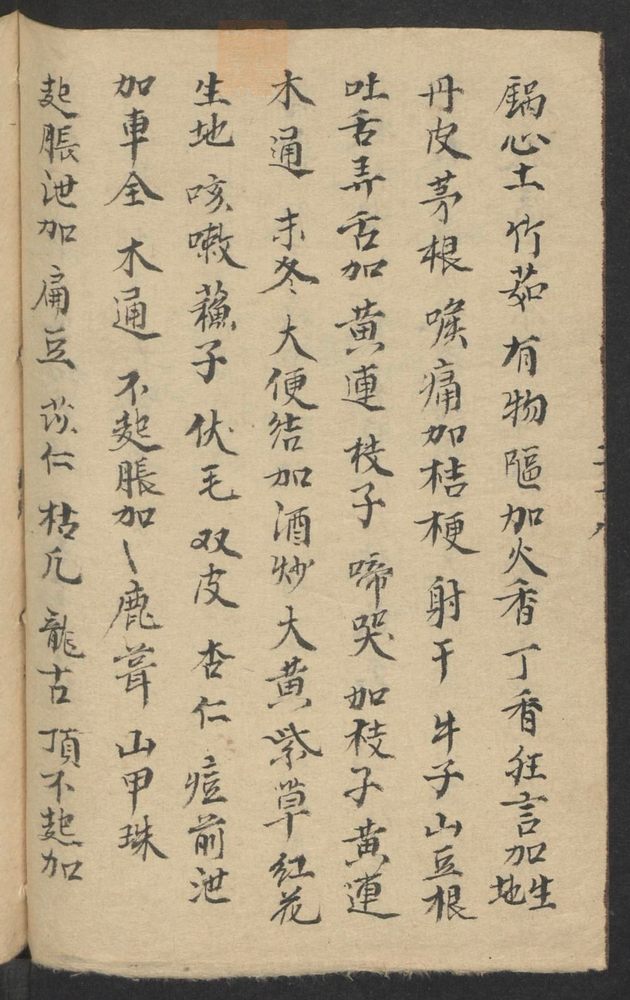 鍋心土 竹茹 有物嘔加火香丁香 狂言加生地
丹皮茅根 喉痛加桔梗 射干 牛子山豆根
吐舌弄舌加黃連 枝子 啼哭 加枝子黃連
木通 末冬 大便结加酒炒大黃紫草红花
生地 咳嗽 蘓子 伏毛 双皮 杏仁 痘前泄
加車全 木通 不起脹加 鹿茸 山甲珠
起脹泄加 扁豆 苡仁 枯凡 龍古 頂不起加